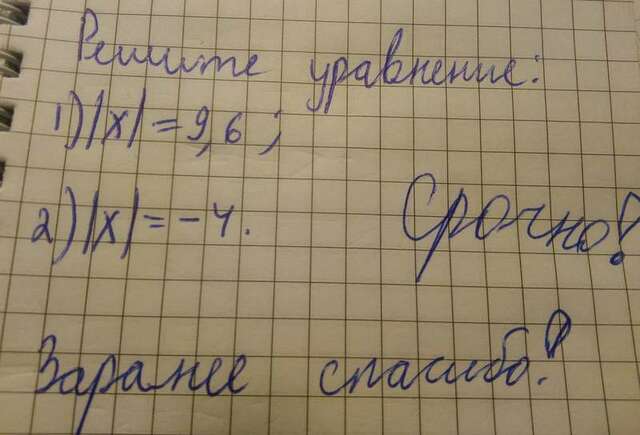 Решите уравнение:
1) |x| = 9,6 ;
2) |x| = - 4.
Срочно!
Заранее спасибо!